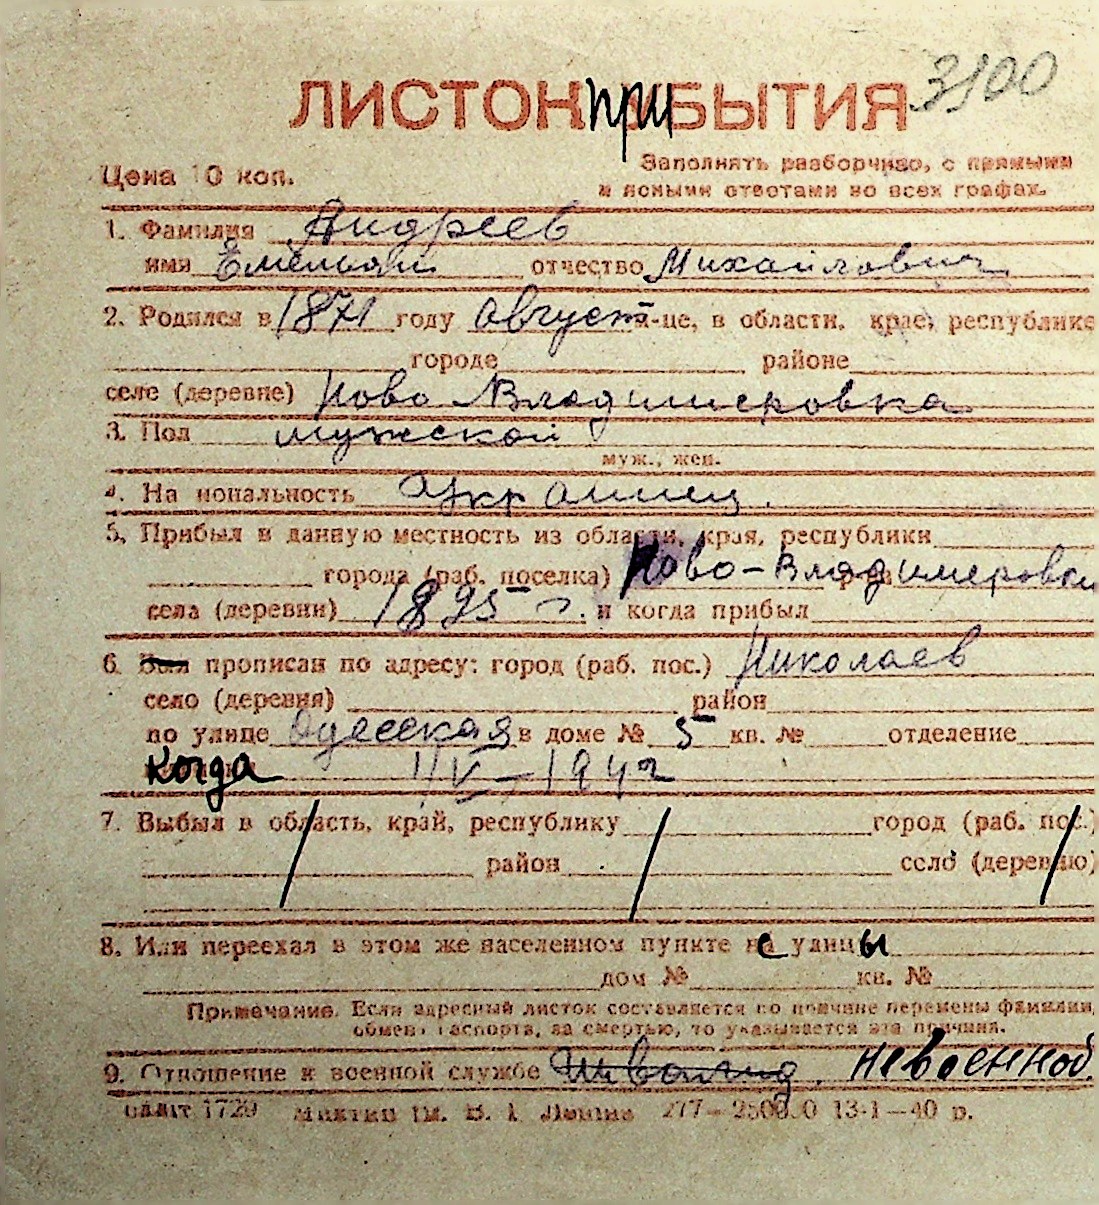 ЛИСТОК ПРИБЫТИЯ 3100
Цена 10 коп.
Заполнять разборчиво, с прямыми
и ясными ответами во всех графах.
1. Фамилия Андреев
имя Емельян отчество Михайлович
2. Родился в 1871 году август м-це, в области, крае, республике
городе районе
селе (деревне) Ново Владимировка
3. Пол мужской
муж., жен.
4. На иональность Украинец.
5. Прибыл в данную местность из области, края, республики
города (раб. поселка) Ново-Владимеровки
села (деревни) 1895 г. и когда прибыл
6. Был прописан по адресу: город (раб. пос.) Николаев
село (деревня) район
по улице Одесская в доме № 5 кв. № отделение
когда 1942
7. Выбыл в область, край, республику город (раб. пос.)
район село (деревню)
8. Или переехал в этом же населенном пункте с улицы
дом № кв. №
Примечание. Если адресный листок составляется по причине перемены фамилии,
обмена паспорта, за смертью, то указывается эта причина.
9. Отношение к военной службе невоенноб.
1729 ім. В. І. Леніна 277— 13-1—40 р.